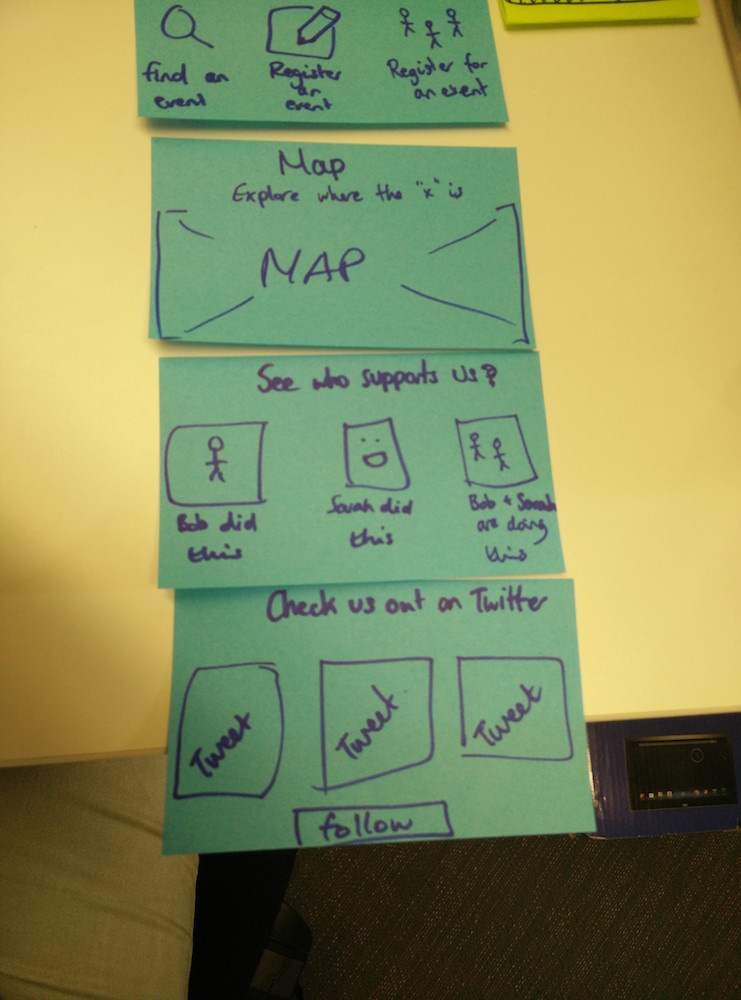 find an
event
Register
an
event
Register for
an event
Map
Explore where the "x" is
MAP
See who supports us?
Bob did
this
Sarah did
this
Bob + Sarah
are doing
this
Check us out on Twitter
Tweet
Tweet
Tweet
follow